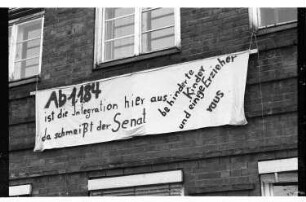 Ab 1.1.84
ist die Integration hier aus
da schmeißt der Senat
behinderte
Kinder
und einige Erzieher
raus